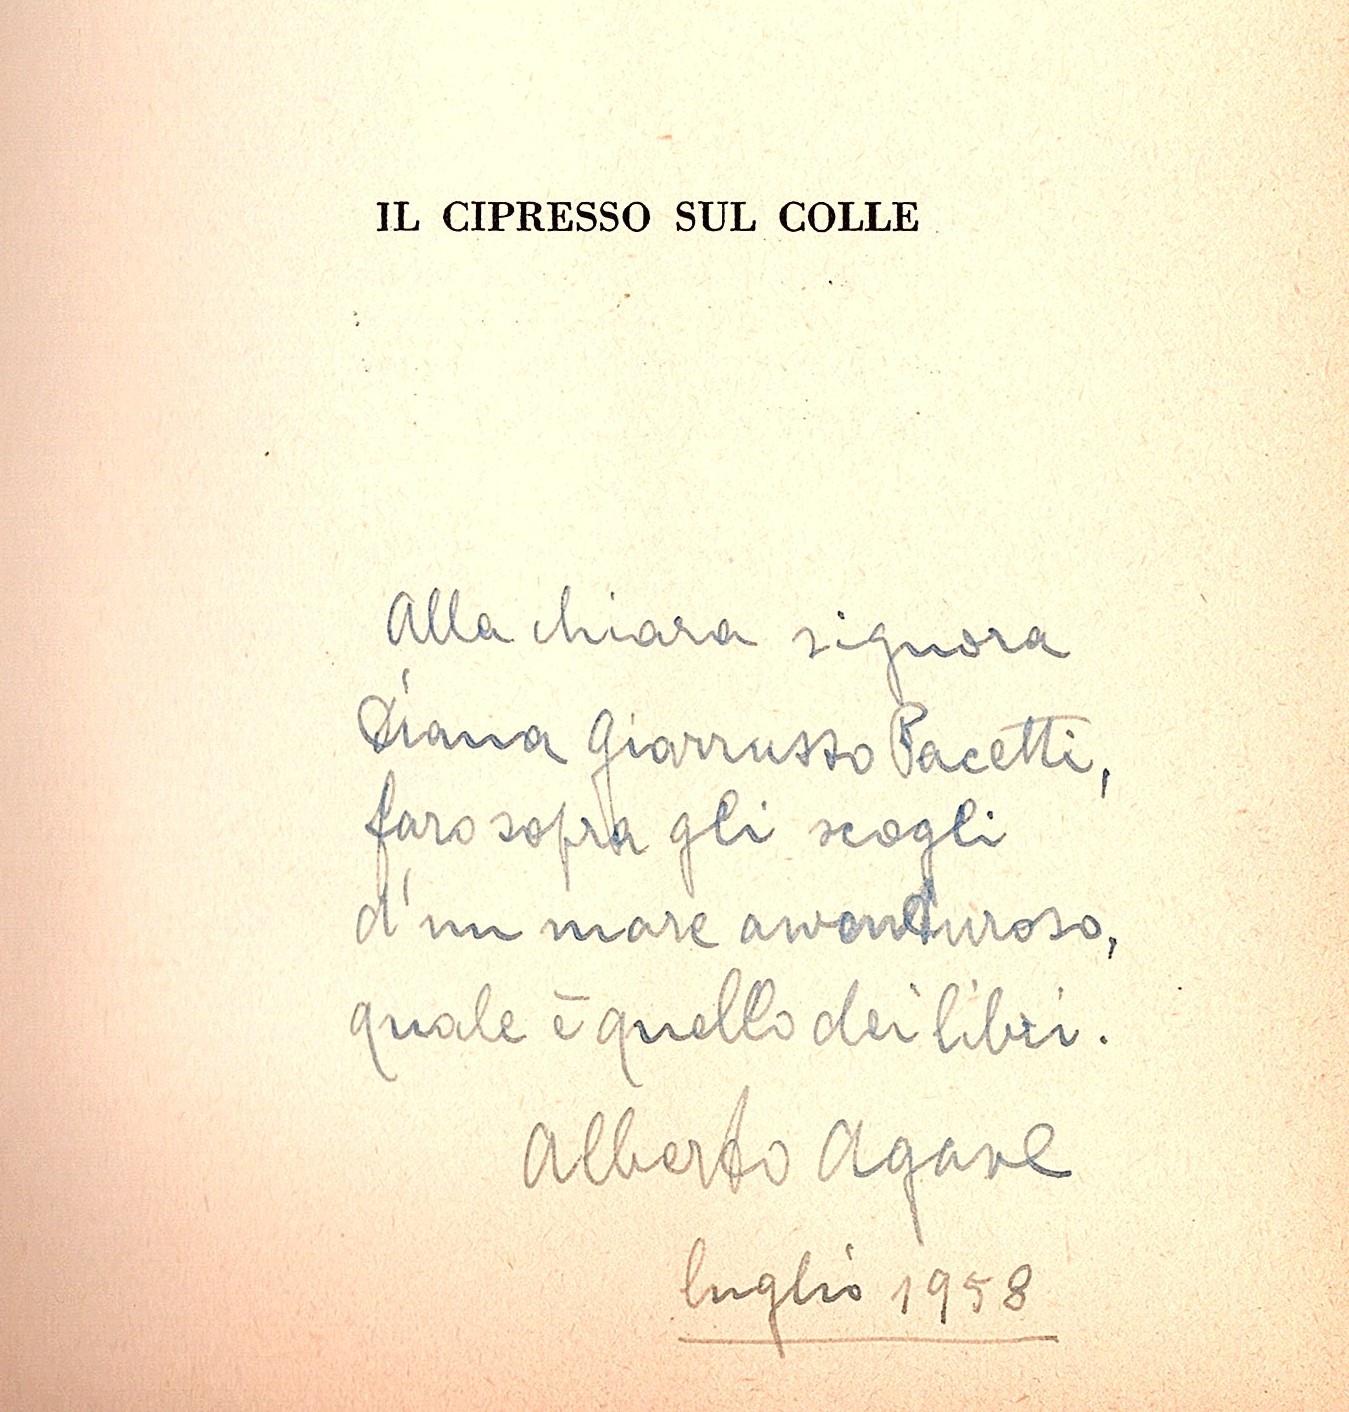 IL CIPRESSO SUL COLLE
Alla chiara signora
Diana Giarrusso Pacetti,
faro sopra gli scogli
d'un mare avventuroso,
quale è quello dei libri.
Alberto Agave
luglio 1958